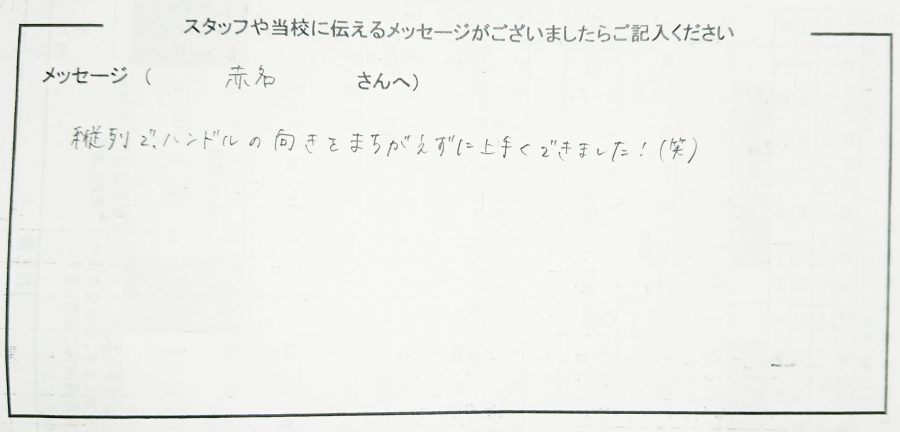 スタッフや当校に伝えるメッセージがございましたらご記入ください
メッセージ（ 赤名 さんへ）
縦列で、ハンドルの向きをまちがえずに上手くできました！(笑)